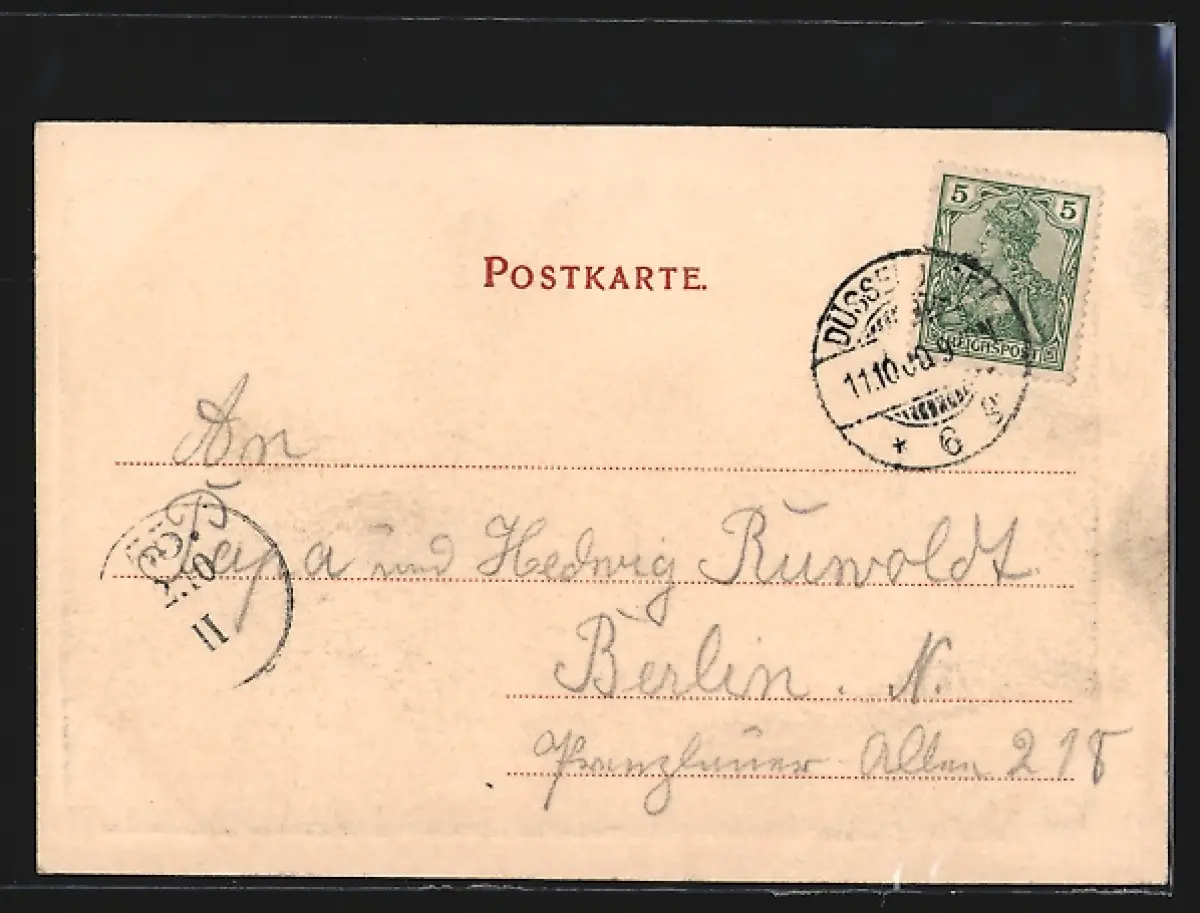 POSTKARTE.
5 5
REICHSPOST
DÜSSELDORF
11.10.00.9
* 6 g
An
Papa und Hedwig Ruwoldt
Berlin. N.
Prenzlauer Allee 218